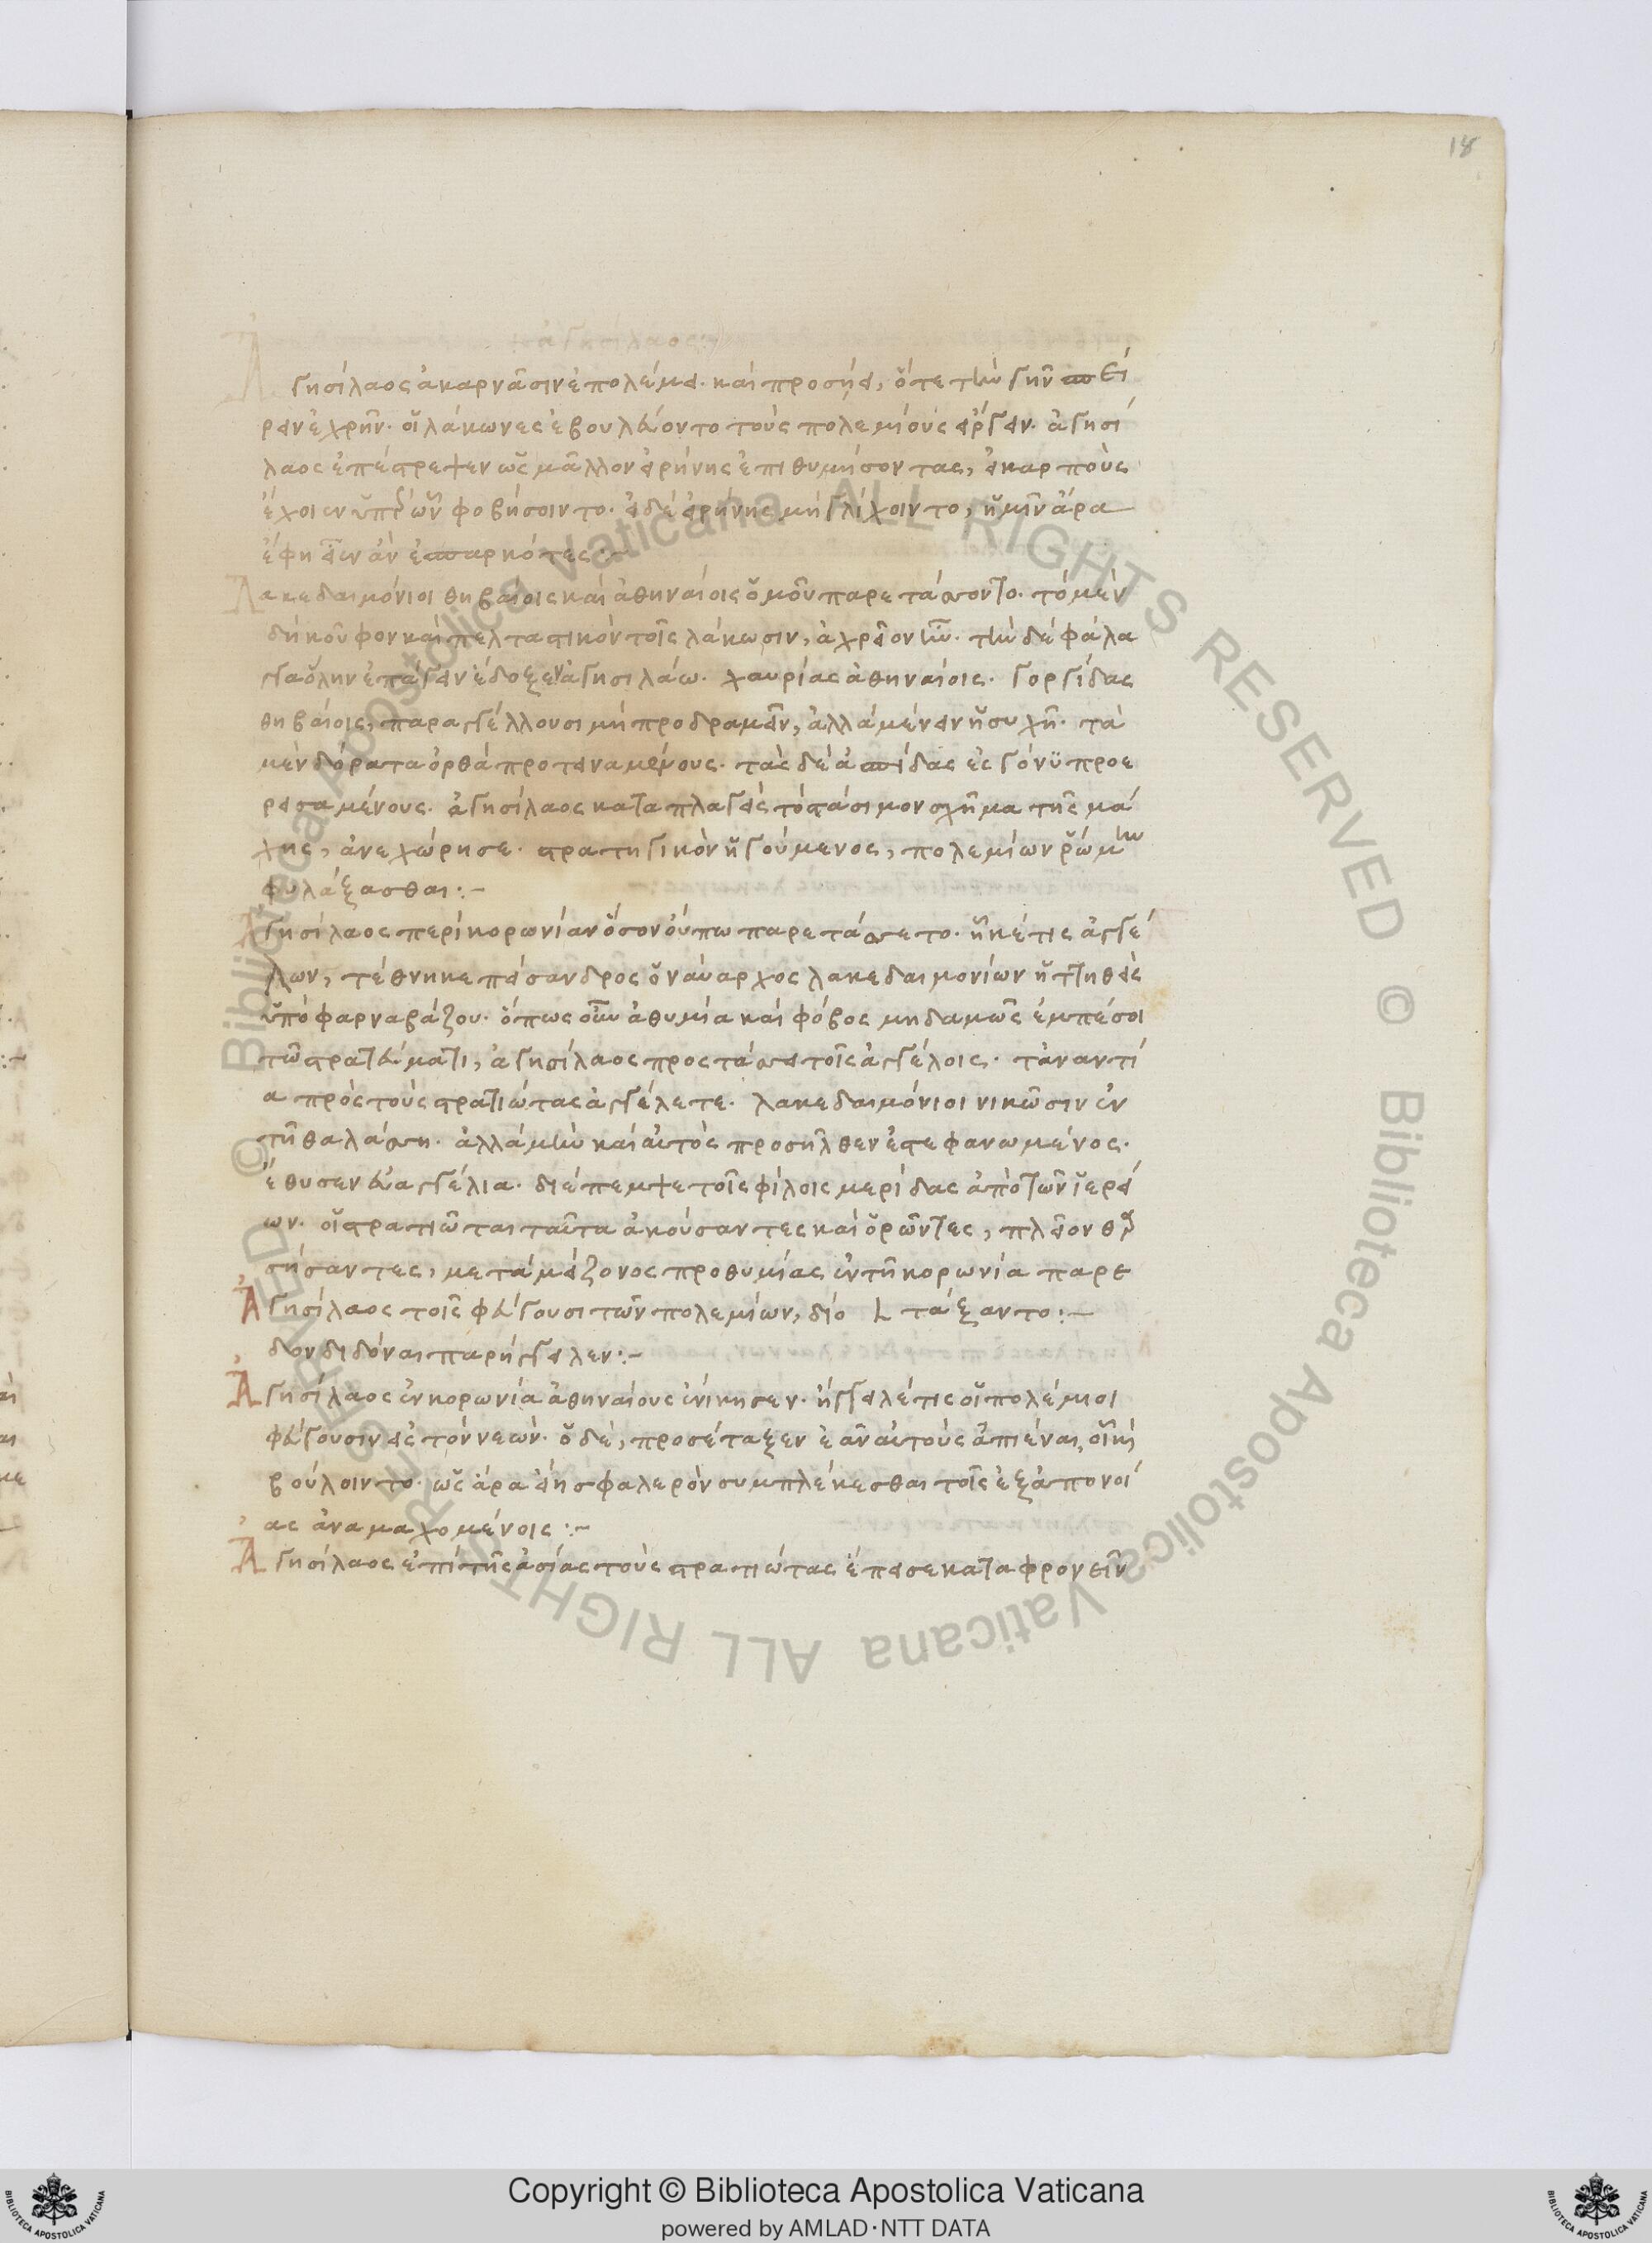 18
ἀγησίλαος
Ἀγησίλαος ἀκαρνᾶσιν ἐπολέμει· καὶ προσήει, ὅτε τὴν γῆν σπεί
ρειν ἐχρῆν· οἱ λάκωνες ἐβουλεύοντο τοὺς πολεμίους εἴργειν· ἀγησί
λαος ἐπέτρεψεν ὡς μᾶλλον εἰρήνης ἐπιθυμήσοντας, εἰ καρποὺς
ἔχοιεν ὑπὲρ ὧν φοβήσοιντο· εἰ δὲ εἰρήνης μὴ γλίχοιντο, ἡμῖν ἄρα
ἔφη εἶεν ἂν ἐσπαρκότες:–
Λακεδαιμόνιοι θηβαίοις καὶ ἀθηναίοις ὁμοῦ παρετάσσοντο· τὸ μὲν
δὴ κοῦφον καὶ πελταστικὸν τοῖς λάκωσιν, ἀχρεῖον ἦν· τὴν δὲ φάλα
γγα ὅλην ἐπάγειν ἔδοξεν ἀγησιλάω· χαυρίας ἀθηναίοις· γοργίδας
θηβαίοις, παραγγέλλουσι μὴ προδραμεῖν, ἀλλὰ μένειν ἡσυχῆ· τὰ
μὲν δόρατα ὀρθὰ προτειναμένους· τὰς δὲ ἀσπίδας ἐς γόνυ προε
ρεισαμένους· ἀγησίλαος καταπλαγεὶς τὸ στάσιμον σχῆμα τῆς μά
χης, ἀνεχώρησε· στρατηγικὸν ἡγούμενος, πολεμίων ῥώμην
φυλάξασθαι:–
Ἀγησίλαος περὶ κορωνίαν ὅσον οὔπω παρετάσσετο· ἧκέ τις ἀγγέ
λων, τέθνηκε πείσανδρος ὁ ναύαρχος λακεδαιμονίων ἡττηθεὶς
ὑπὸ φαρναβάζου· ὅπως οὖν ἀθυμία καὶ φόβος μηδαμῶς ἐμπέσοι
τῶ στρατεύματι, ἀγησίλαος προστάσσει τοῖς ἀγγέλοις· τἀναντί
α πρὸς τοὺς στρατιώτας ἀγγέλετε· λακεδαιμόνιοι νικῶσιν ἐν
τῆ θαλάσση· ἀλλὰ μὴν καὶ αὐτὸς προσῆλθεν ἐστεφανωμένος·
ἔθυσεν εὐαγγέλια· διέπεμψε τοῖς φίλοις μερίδας ἀπὸ τῶν ἱερεί
ων· οἱ στρατιῶται ταῦτα ἀκούσαντες καὶ ὁρῶντες, πλεῖον θαρ
σήσαντες, μετὰ μείζονος προθυμίας ἐν τῆ κορωνία παρε
Ἀγησίλαος τοῖς φεύγουσι τῶν πολεμίων, δίο L τάξαντο:–
δον διδόναι παρήγγειλεν:–
Ἀγησίλαος ἐν κορωνία ἀθηναίους ἐνίκησεν· ἤγγειλέ τις οἱ πολέμιοι
φεύγουσιν εἰς τὸν νεών· ὁ δὲ, προσέταξεν ἐᾶν αὐτοὺς ἀπιέναι, οἷ καὶ
βούλοιντο· ὡς ἄρα εἴη σφαλερὸν συμπλέκεσθαι τοῖς ἐξ ἀπονοί
ας ἀναμαχομένοις:–
Ἀγησίλαος ἐπὶ τῆς ἀσίας τοὺς στρατιώτας ἔπεισε καταφρονεῖν
© Biblioteca Apostolica Vaticana ALL RIGHTS RESERVED © Biblioteca Apostolica Vaticana ALL RIGHTS RESERVED
Copyright © Biblioteca Apostolica Vaticana
powered by AMLAD·NTT DATA